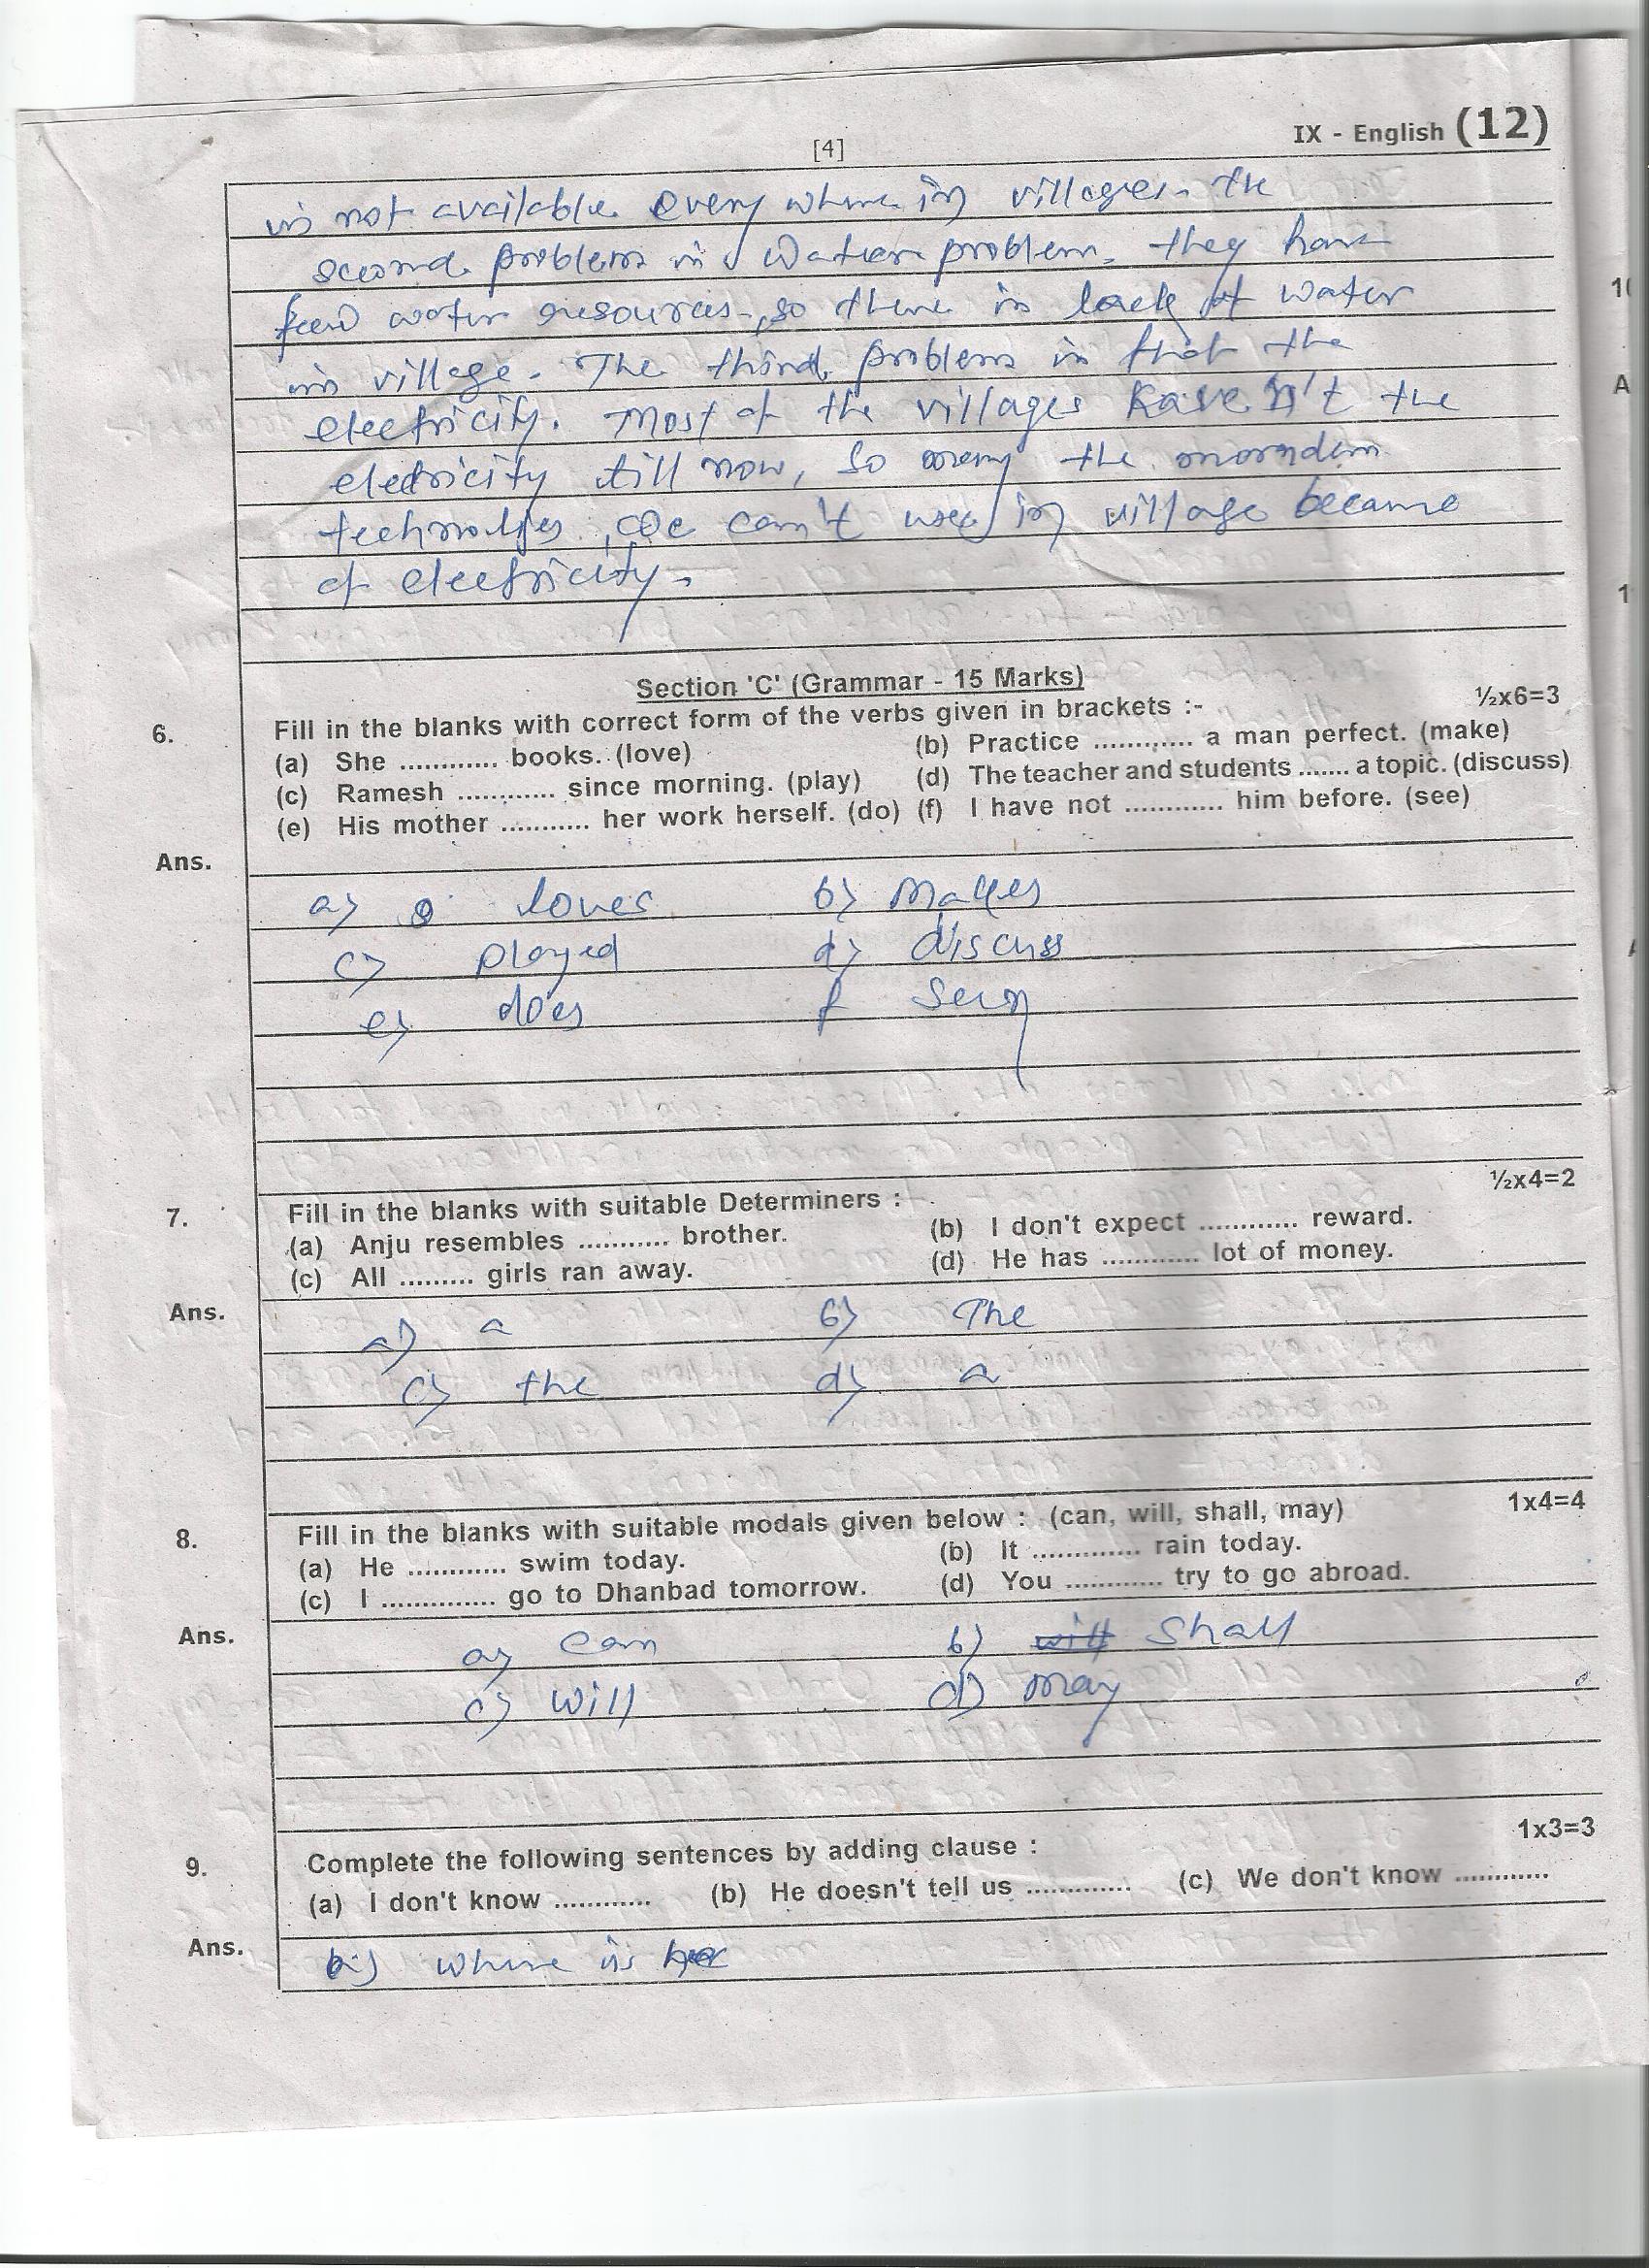 IX - English (12)
[4]
is not available every where in villages. the
second problem is water problem. they have
few water resources, so there is lack of water
in village. The third problem is that the
electricity. Most of the villages haven't the
electricity till now, so many the
we can't use in village because
of electricity.
Section 'C' (Grammar - 15 Marks)
6. Fill in the blanks with correct form of the verbs given in brackets :- ½x6=3
(a) She ............ books. (love) (b) Practice ............ a man perfect. (make)
(c) Ramesh ............ since morning. (play) (d) The teacher and students ....... a topic. (discuss)
(e) His mother ........... her work herself. (do) (f) I have not ............ him before. (see)
Ans.
a) loves b) Makes
c) played d) discuss
e) does f seen
7. Fill in the blanks with suitable Determiners : ½x4=2
(a) Anju resembles ........... brother. (b) I don't expect ............ reward.
(c) All ......... girls ran away. (d) He has ............ lot of money.
Ans.
a) a b) The
c) the d) a
8. Fill in the blanks with suitable modals given below : (can, will, shall, may) 1x4=4
(a) He ............ swim today. (b) It ............. rain today.
(c) I .............. go to Dhanbad tomorrow. (d) You ............ try to go abroad.
Ans.
a) can b) will Shall
c) will d) may
9. Complete the following sentences by adding clause : 1x3=3
(a) I don't know ............ (b) He doesn't tell us ............. (c) We don't know ............
Ans. where is